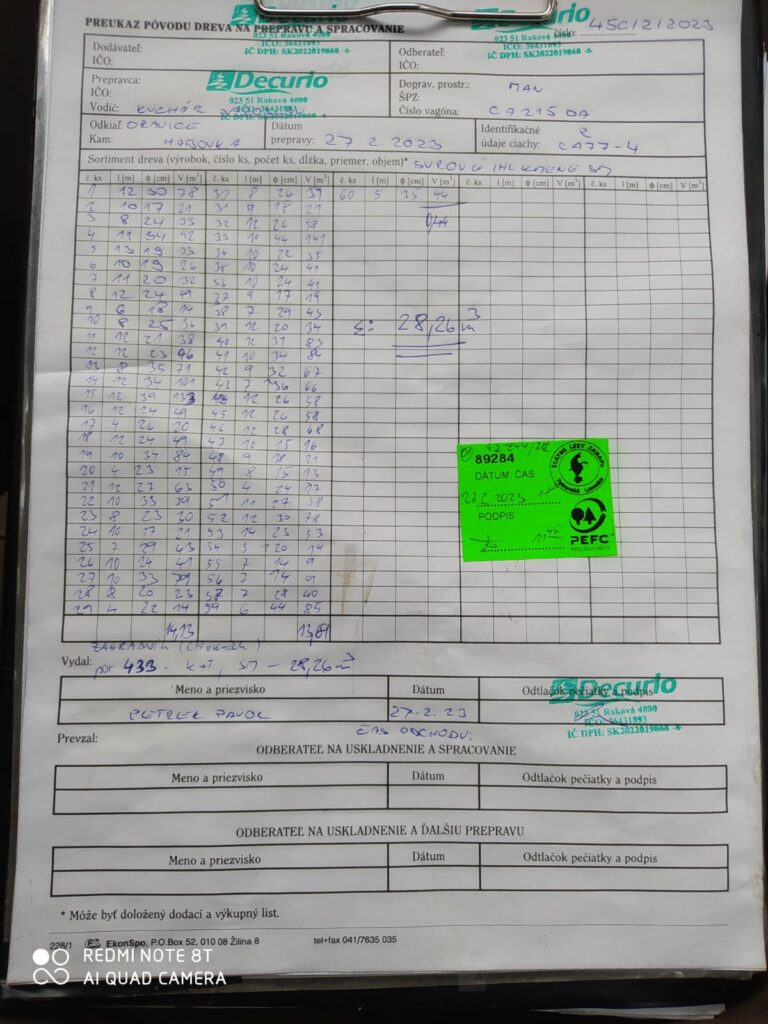 PREUKAZ PÔVODU DREVA NA PREPRAVU A SPRACOVANIE
Decurio
023 51 Raková 4000
IČO: 36431893
IČ DPH: SK2022019868
Decurio
023 51 Raková 4000
IČO: 36431893
IČ DPH: SK2022019868
číslo: 450/2/2023
Dodávateľ:
IČO:
Odberateľ:
IČO:
Prepravca:
IČO:
Decurio
023 51 Raková 4000
IČO: 36431893
IČ DPH: SK2022019868
Vodič: KUCHÁR
Doprav. prostr.: MAN
ŠPZ:
Číslo vagóna: CA215DA
Odkiaľ: ORAVICE
Kam: HABOVKA
Dátum
prepravy: 27.2 2023
Identifikačné
údaje ciachy: CA77-4
Sortiment dreva (výrobok, číslo ks, počet ks, dĺžka, priemer, objem)* SUROVÉ IHL KMENE SM
č. ks l [m] ϕ [cm] V [m³] č. ks l [m] ϕ [cm] V [m³] č. ks l [m] ϕ [cm] V [m³] č. ks l [m] ϕ [cm] V [m³] č. ks l [m] ϕ [cm] V [m³]
1 12 30 78 31 8 26 39 60 5 35 44
2 10 17 21 31 9 18 21
0,44
3 8 24 33 32 12 26 58
4 11 34 92 33 10 44 141
5 13 19 33 34 10 22 35
6 10 19 26 35 10 24 41
7 11 20 32 36 10 24 41
8 12 24 49 37 9 17 19
9 6 18 14 38 7 29 43
10 8 25 36 39 12 20 34
Σ: 28,26 m³
11 12 21 38 40 12 31 83
12 12 23 46 41 10 34 84
13 8 35 71 42 9 32 67
14 12 34 101 43 7 36 66
15 12 39 133 44 12 26 58
16 12 24 49 45 12 26 58
17 4 26 20 46 12 28 68
18 12 24 49 47 10 15 16
19 10 34 84 48 9 18 21
20 4 23 15 49 8 15 13
21 12 27 63 50 4 24 17
22 10 33 79 51 11 27 58
23 8 23 30 52 12 30 78
24 10 17 21 53 14 23 53
25 7 29 43 54 5 20 14
26 10 24 41 55 7 14 9
27 10 33 79 56 7 14 9
28 8 20 23 58 7 28 40
29 4 22 14 59 6 44 85
14,13 13,69
89284
DÁTUM: ČAS
27.2 2023
PODPIS
11 45
ŠTÁTNE LESY TANAPu
Tatranská Lomnica
PEFC
Vydal: por 433 - K+T, SM - 28,26 m³
Meno a priezvisko Dátum Odtlačok pečiatky a podpis
PETREK PAVOL 27-2.23
Decurio
023 51 Raková 4000
IČO: 36431893
IČ DPH: SK2022019868
Prevzal:
ČAS ODCHODU:
ODBERATEĽ NA USKLADNENIE A SPRACOVANIE
Meno a priezvisko Dátum Odtlačok pečiatky a podpis
ODBERATEĽ NA USKLADNENIE A ĎALŠIU PREPRAVU
Meno a priezvisko Dátum Odtlačok pečiatky a podpis
* Môže byť doložený dodací a výkupný list.
228/1 EkonSpo, P.O.Box 52, 010 08 Žilina 8 tel+fax 041/7635 035
REDMI NOTE 8T
AI QUAD CAMERA